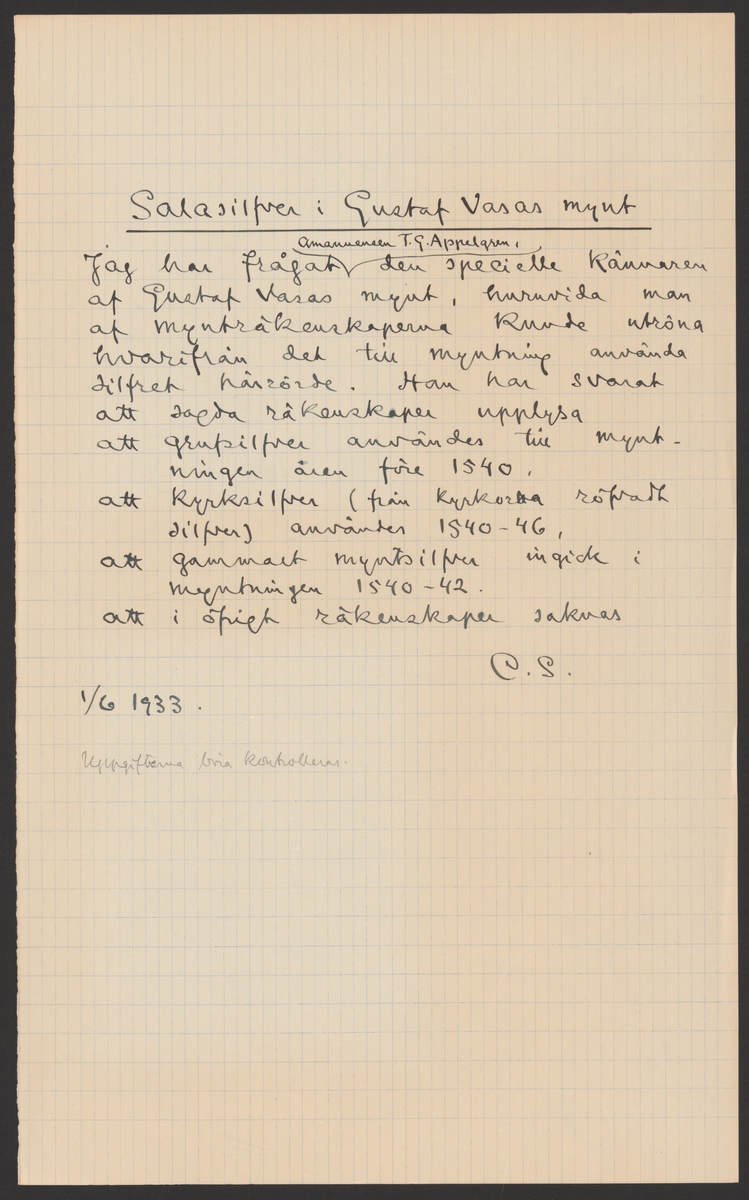 Salasilfver i Gustaf Vasas mynt
amanuensen T.G. Appelgren,
Jag har frågat den specielle kännaren
af Gustaf Vasas mynt, huruvida man
af mynträkenskaperna kunde utröna
hvarifrån det till myntning använda
silfret härrörde. Han har svarat
att sagda räkenskaper upplysa
att grufsilfver användes till mynt-
ningen åren före 1540,
att kyrksilfver (från kyrkorna röfvadt
silfver) användes 1540-46,
att gammalt myntsilfver ingick i
myntningen 1540-42.
att i öfrigt räkenskaper saknas
C.S.
1/6 1933.
Uppgifterna böra kontrolleras.